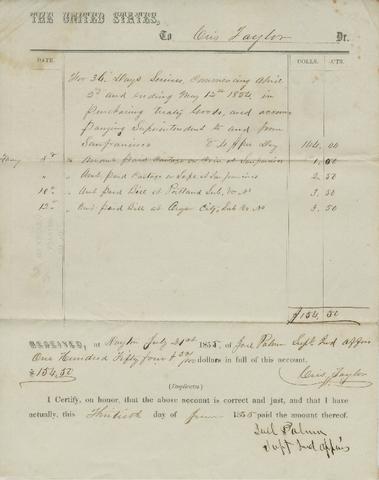 THE UNITED STATES,
To Cris Taylor Dr.
DATE. DOLLS. CTS.
For 36 Days Service, Commencing April
2d and ending May 12th 1854 in
purchasing treaty Goods, and accom
panying Superintendent to and from
Sanfrancisco @ $4 Per Day 144.00
May " Amount paid Cartage on 1.00
" " Amt Paid Cartage at Sanfrancisco 2.50
10th " Amt Paid Bill at Portland Sub, Vo No 3.50
12th " Amt paid Bill at Oregon City, Sub Vo No 3.50
$154.50
RECEIVED, at Dayton July 21st 1855, of Joel Palmer Supt Ind Affairs
One Hundred Fifty four & 50/100 dollars in full of this account.
$154.50 Cris Taylor
(Duplicate)
I Certify, on honor, that the above account is correct and just, and that I have
actually, this Thirtieth day of June 1855 paid the amount thereof.
Joel Palmer
Supt Ind Affairs